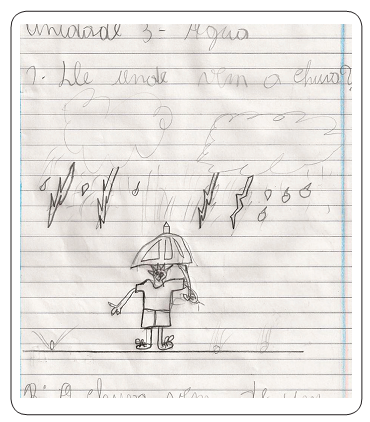 Unidade 3 - Água
1. De onde vem a chuva?
R: A chuva vem de um